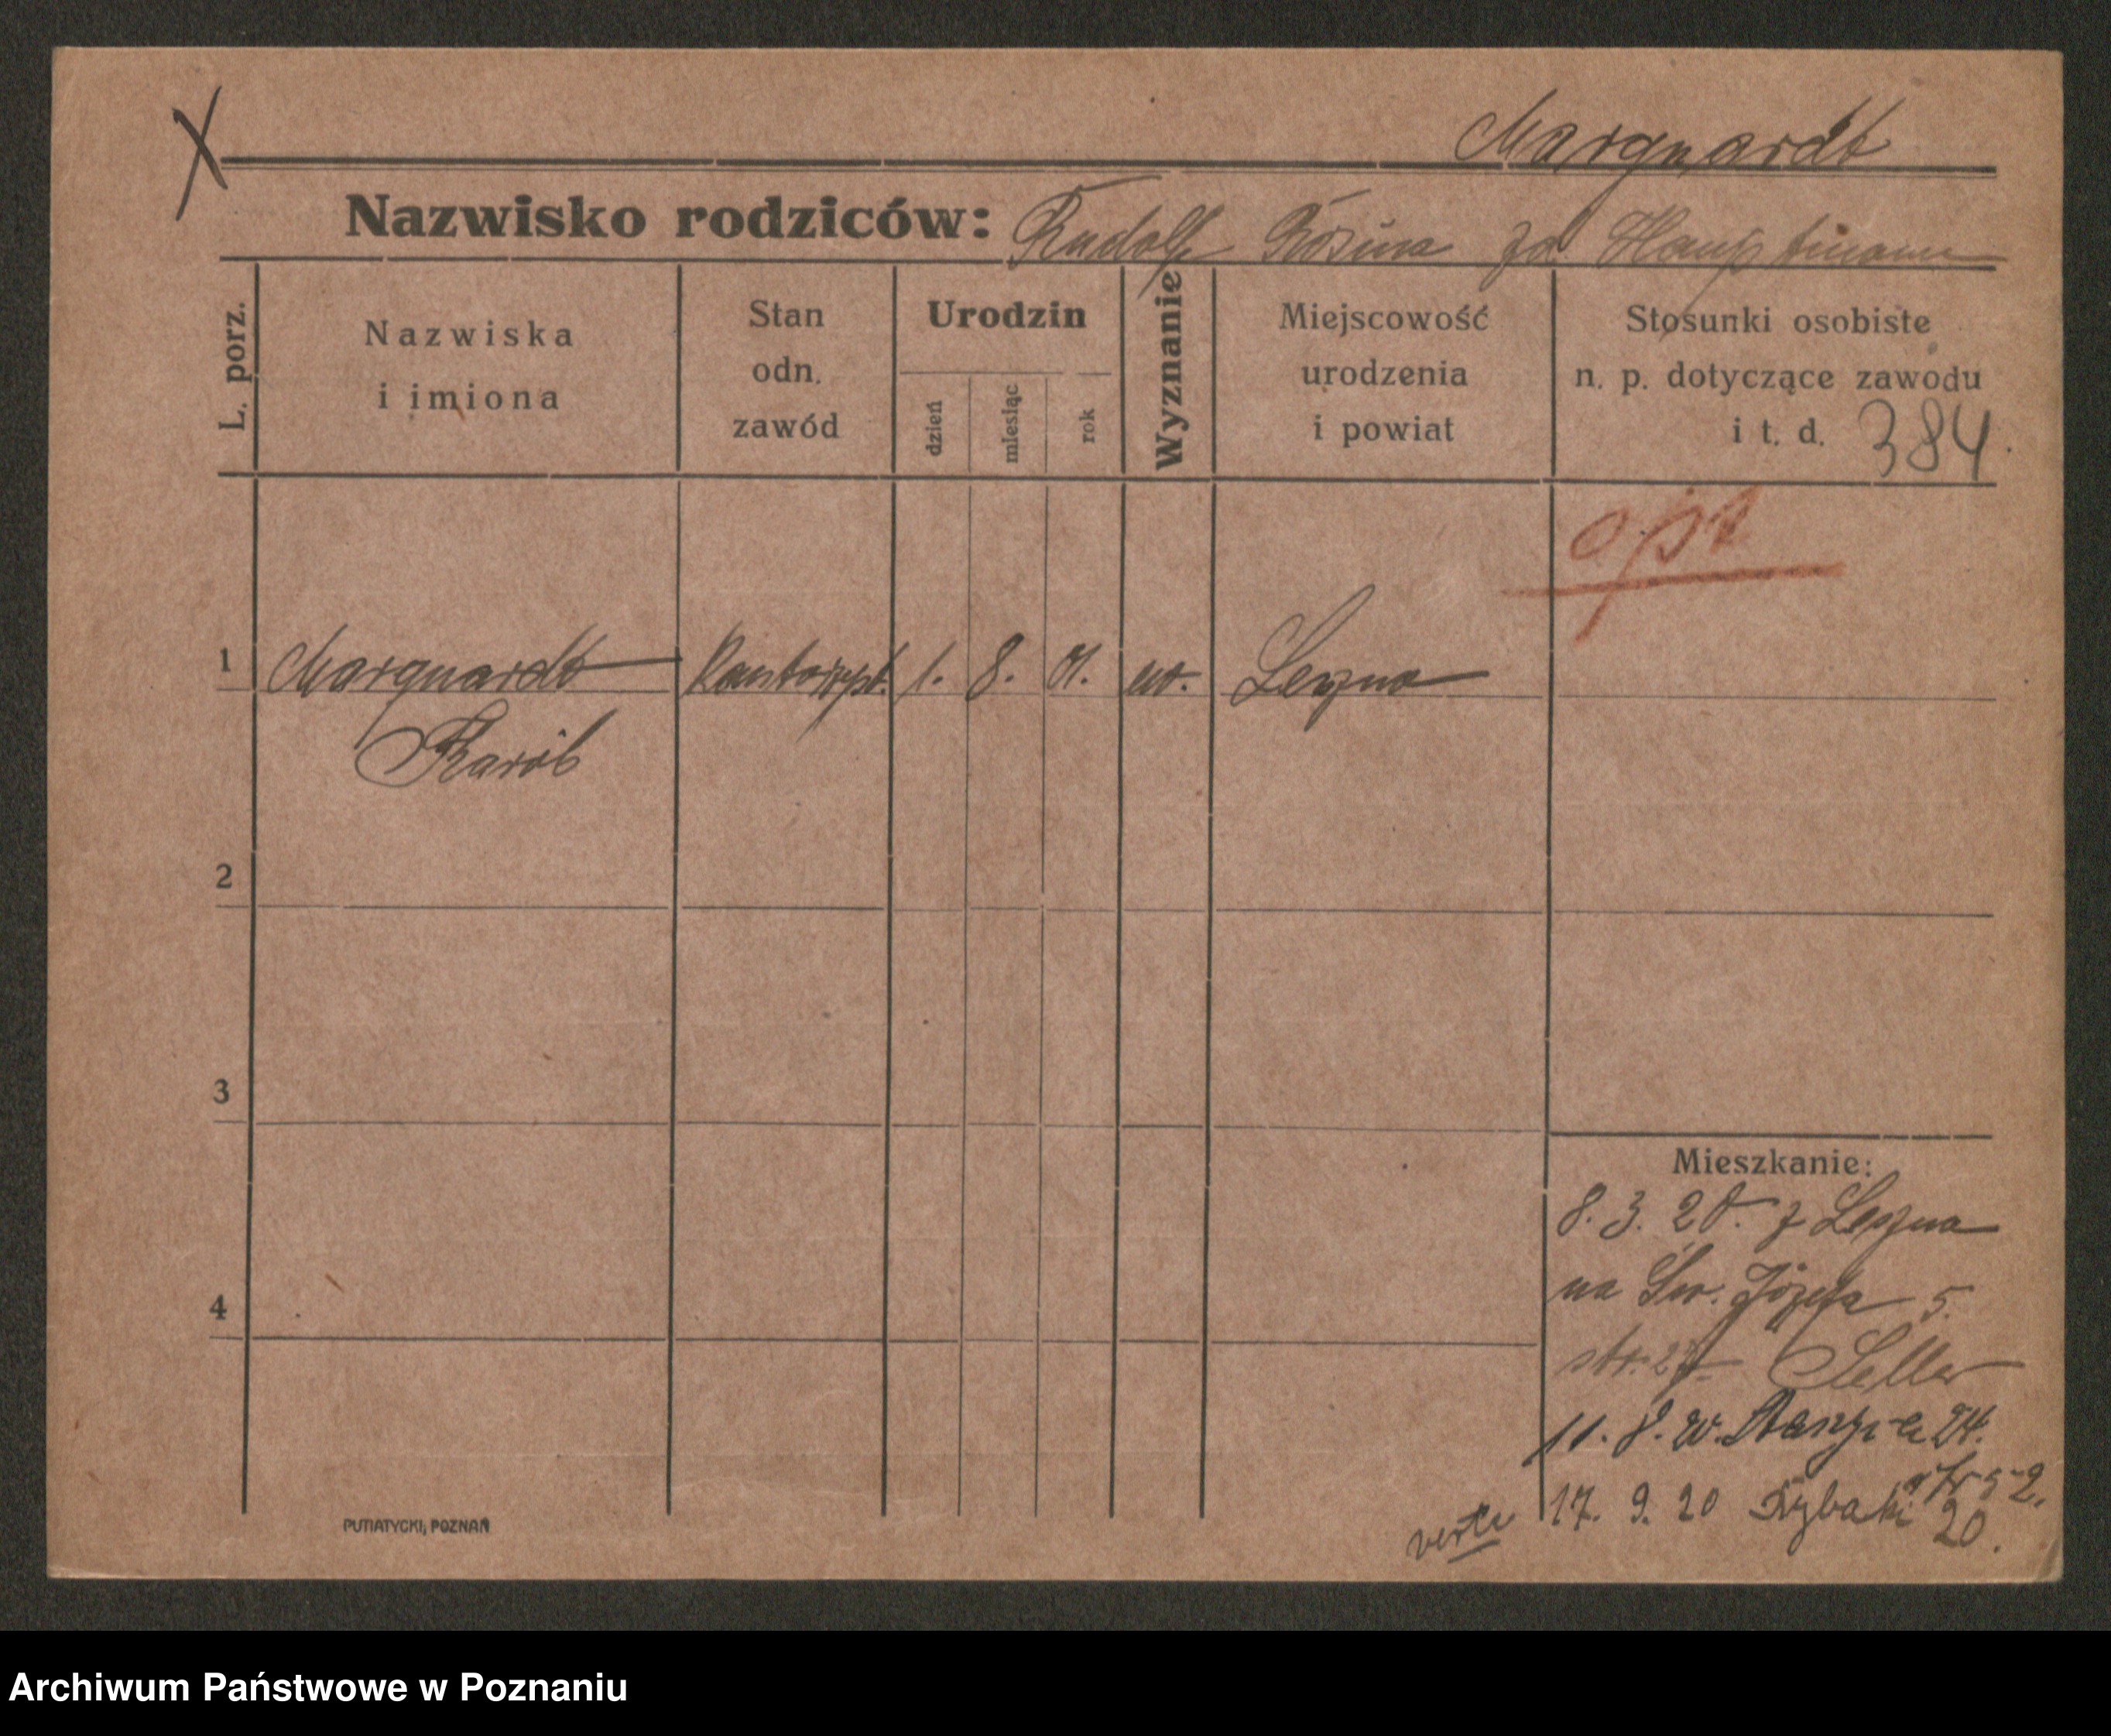 Marquardt
Nazwisko rodziców: Rudolf Rosina zd Hauptmann
L. porz.
Nazwiska
i imiona
Stan
odn.
zawód
Urodzin
dzień
miesiąc
rok
Wyznanie
Miejscowość
urodzenia
i powiat
Stosunki osobiste
n. p. dotyczące zawodu
i t. d.
384
opt
1 Marquardt 1. 8. 01. ew. Leszno
Karól
2
3
4
Mieszkanie:
8. 3. 20. z Leszna
na Św. Józefa 5.
str. 27
11. 8. 20. 24.
17. 9. 20 Rybaki 20.
verte
PUTIATYCKI, POZNAŃ
Archiwum Państwowe w Poznaniu